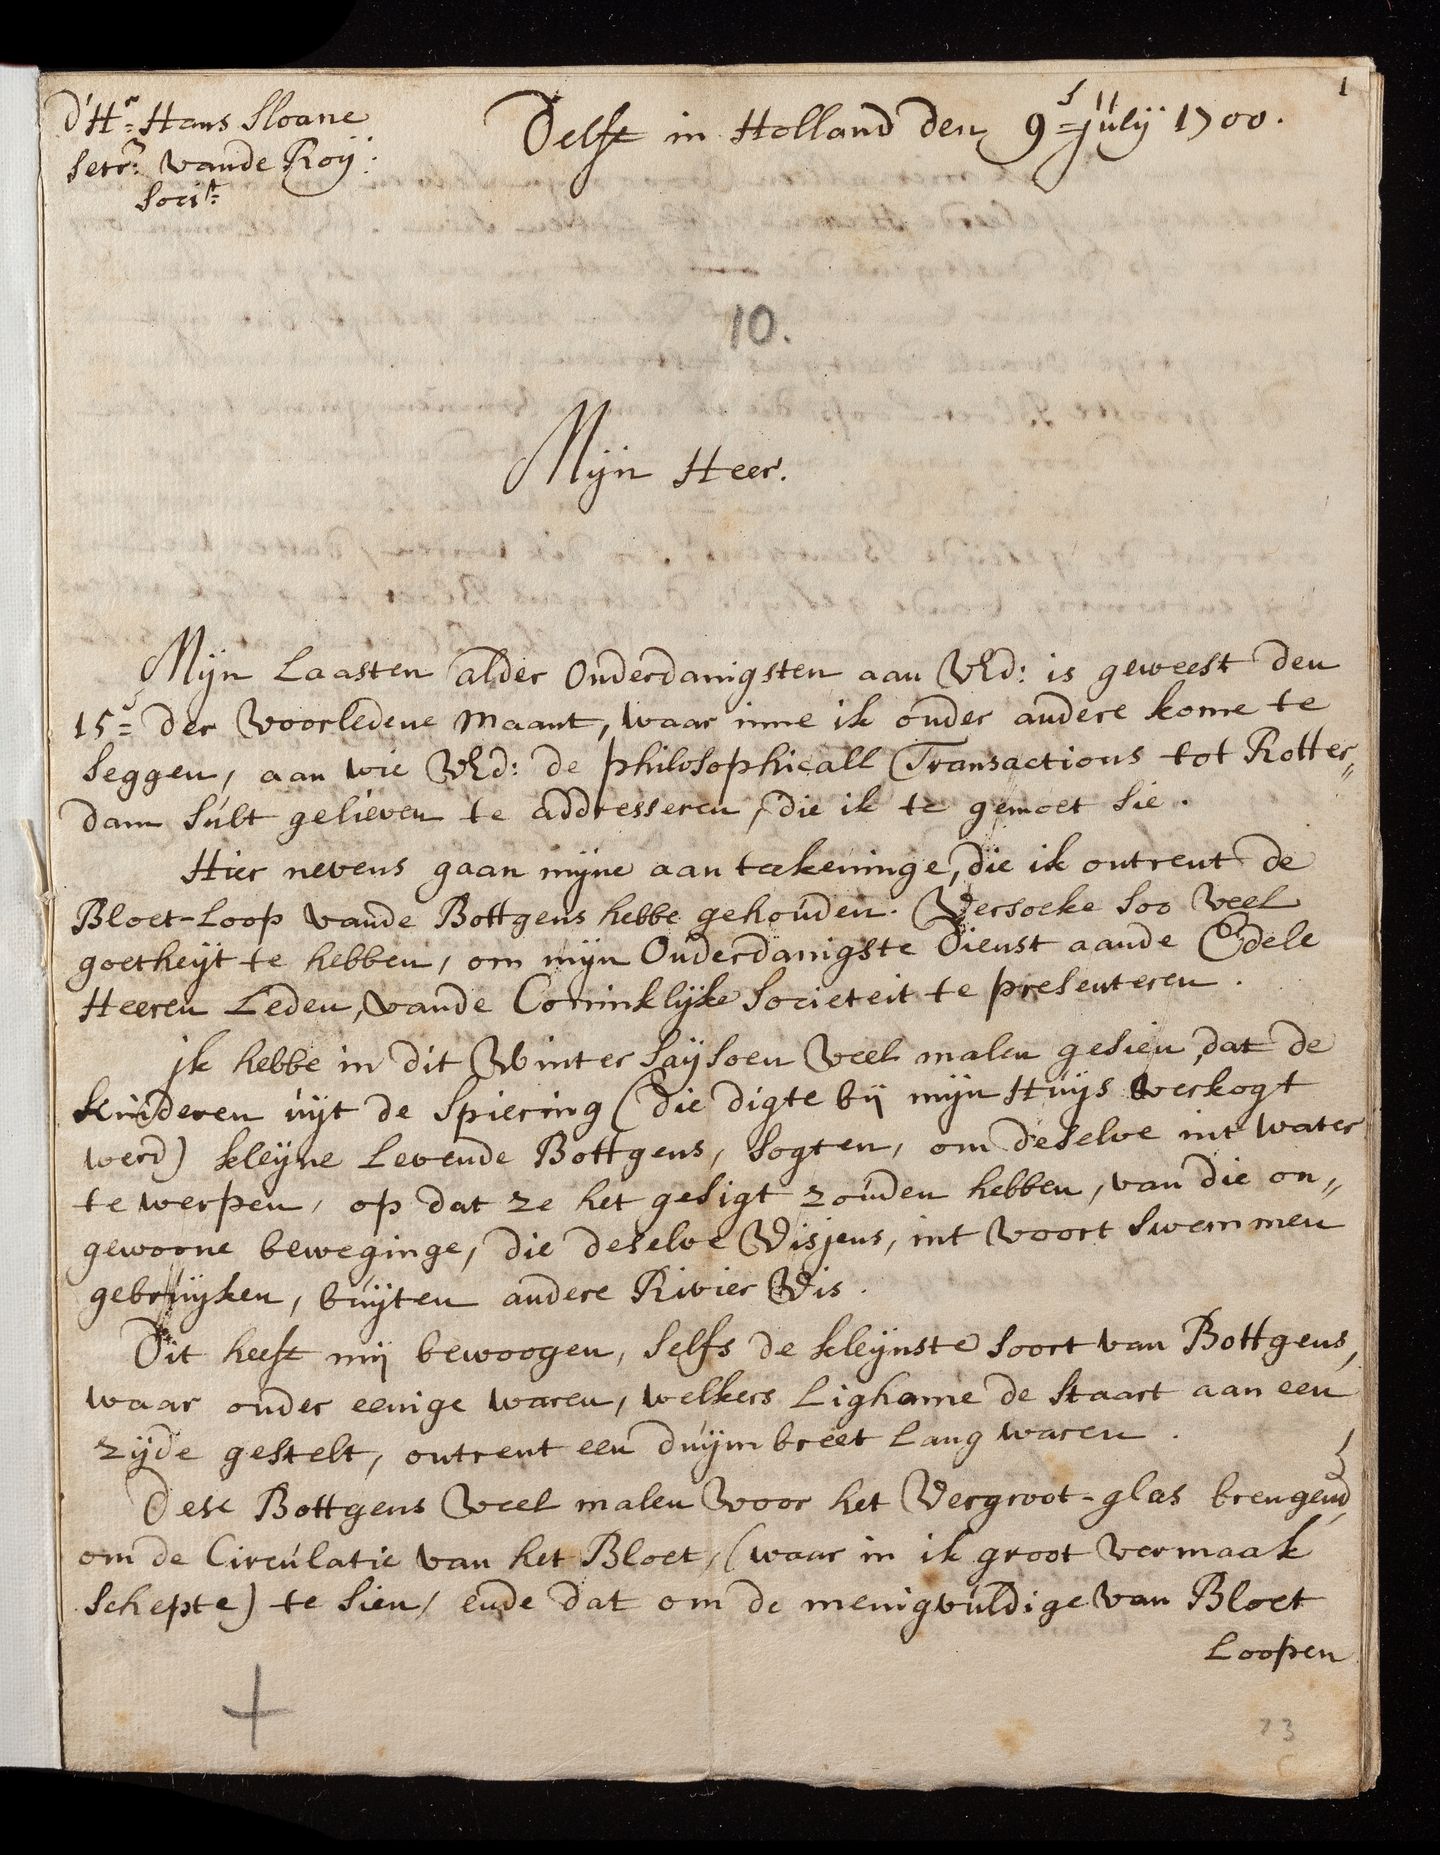 1
d'Hr: Hans Sloane
Secr: vande Roy:
Soci.t
Delft in Holland den 9e july 1700.
10.
Mijn Heer.
Mijn Laasten alder Onderdanigsten aan UEd: is geweest den
15e der voorledene maant, waar inne ik onder andere kome te
seggen, aan wie UEd: de philosophicall Transactions tot Rotter„
dam sult gelieven te addresseren, die ik te gemoet sie.
Hier nevens gaan mijne aan teekeninge, die ik ontrent de
Bloet-Loop vande Bottgens hebbe gehouden. Versoeke soo veel
goetheijt te hebben, om mijn Onderdanigste Dienst aande Edele
Heeren Leden, vande Coninklijke Societeit te presenteren.
jk hebbe in dit Winter saijsoen veel malen gesien, dat de
kinderen uijt de Spiering (die digte bij mijn Huijs verkogt
werd) kleijne Levende Bottgens, sogten, om deselve int water
te werpen, op dat ze het gesigt zouden hebben, van die on„
gewoone beweginge, die deselve Visjens, int voort swemmen
gebruijken, buijten andere Rivier Vis.
Dit heeft mij bewoogen, selfs de kleijnste soort van Bottgens,
waar onder eenige waren, welkers Lighame de staart aan een
zijde gestelt, ontrent een duijm breet lang waren.
Dese Bottgens veel malen voor het Vergroot-glas brengend
om de Circulatie van het Bloet, (waar in ik groot vermaak
schepte) te sien, ende dat om de menigvuldige van Bloet
Loopen
73